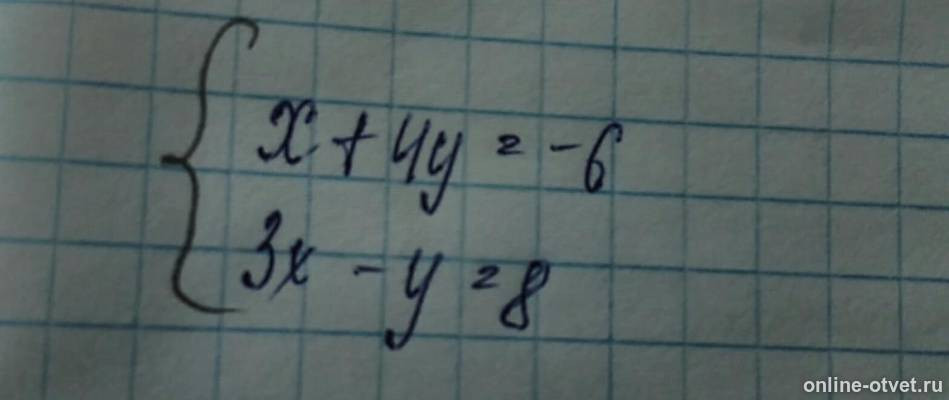 x + 4y = -6
3x - y = 8
online-otvet.ru